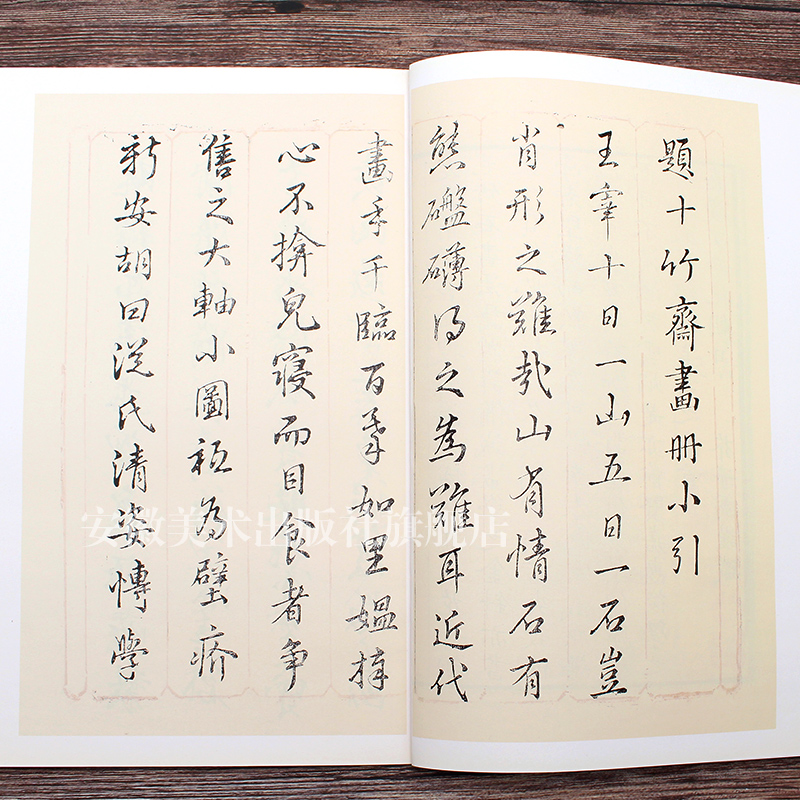 題十竹齋畫册小引
王宰十日一山五日一石豈
肖形之難哉山有情石有
態礴礴得之為難耳近代
畫手千臨百摹如里媼捧
心不揜兒寢而目食者争
售之大軸小圖秖為壁疥
新安胡曰從氏清姿博學
安徽美术出版社旗舰店